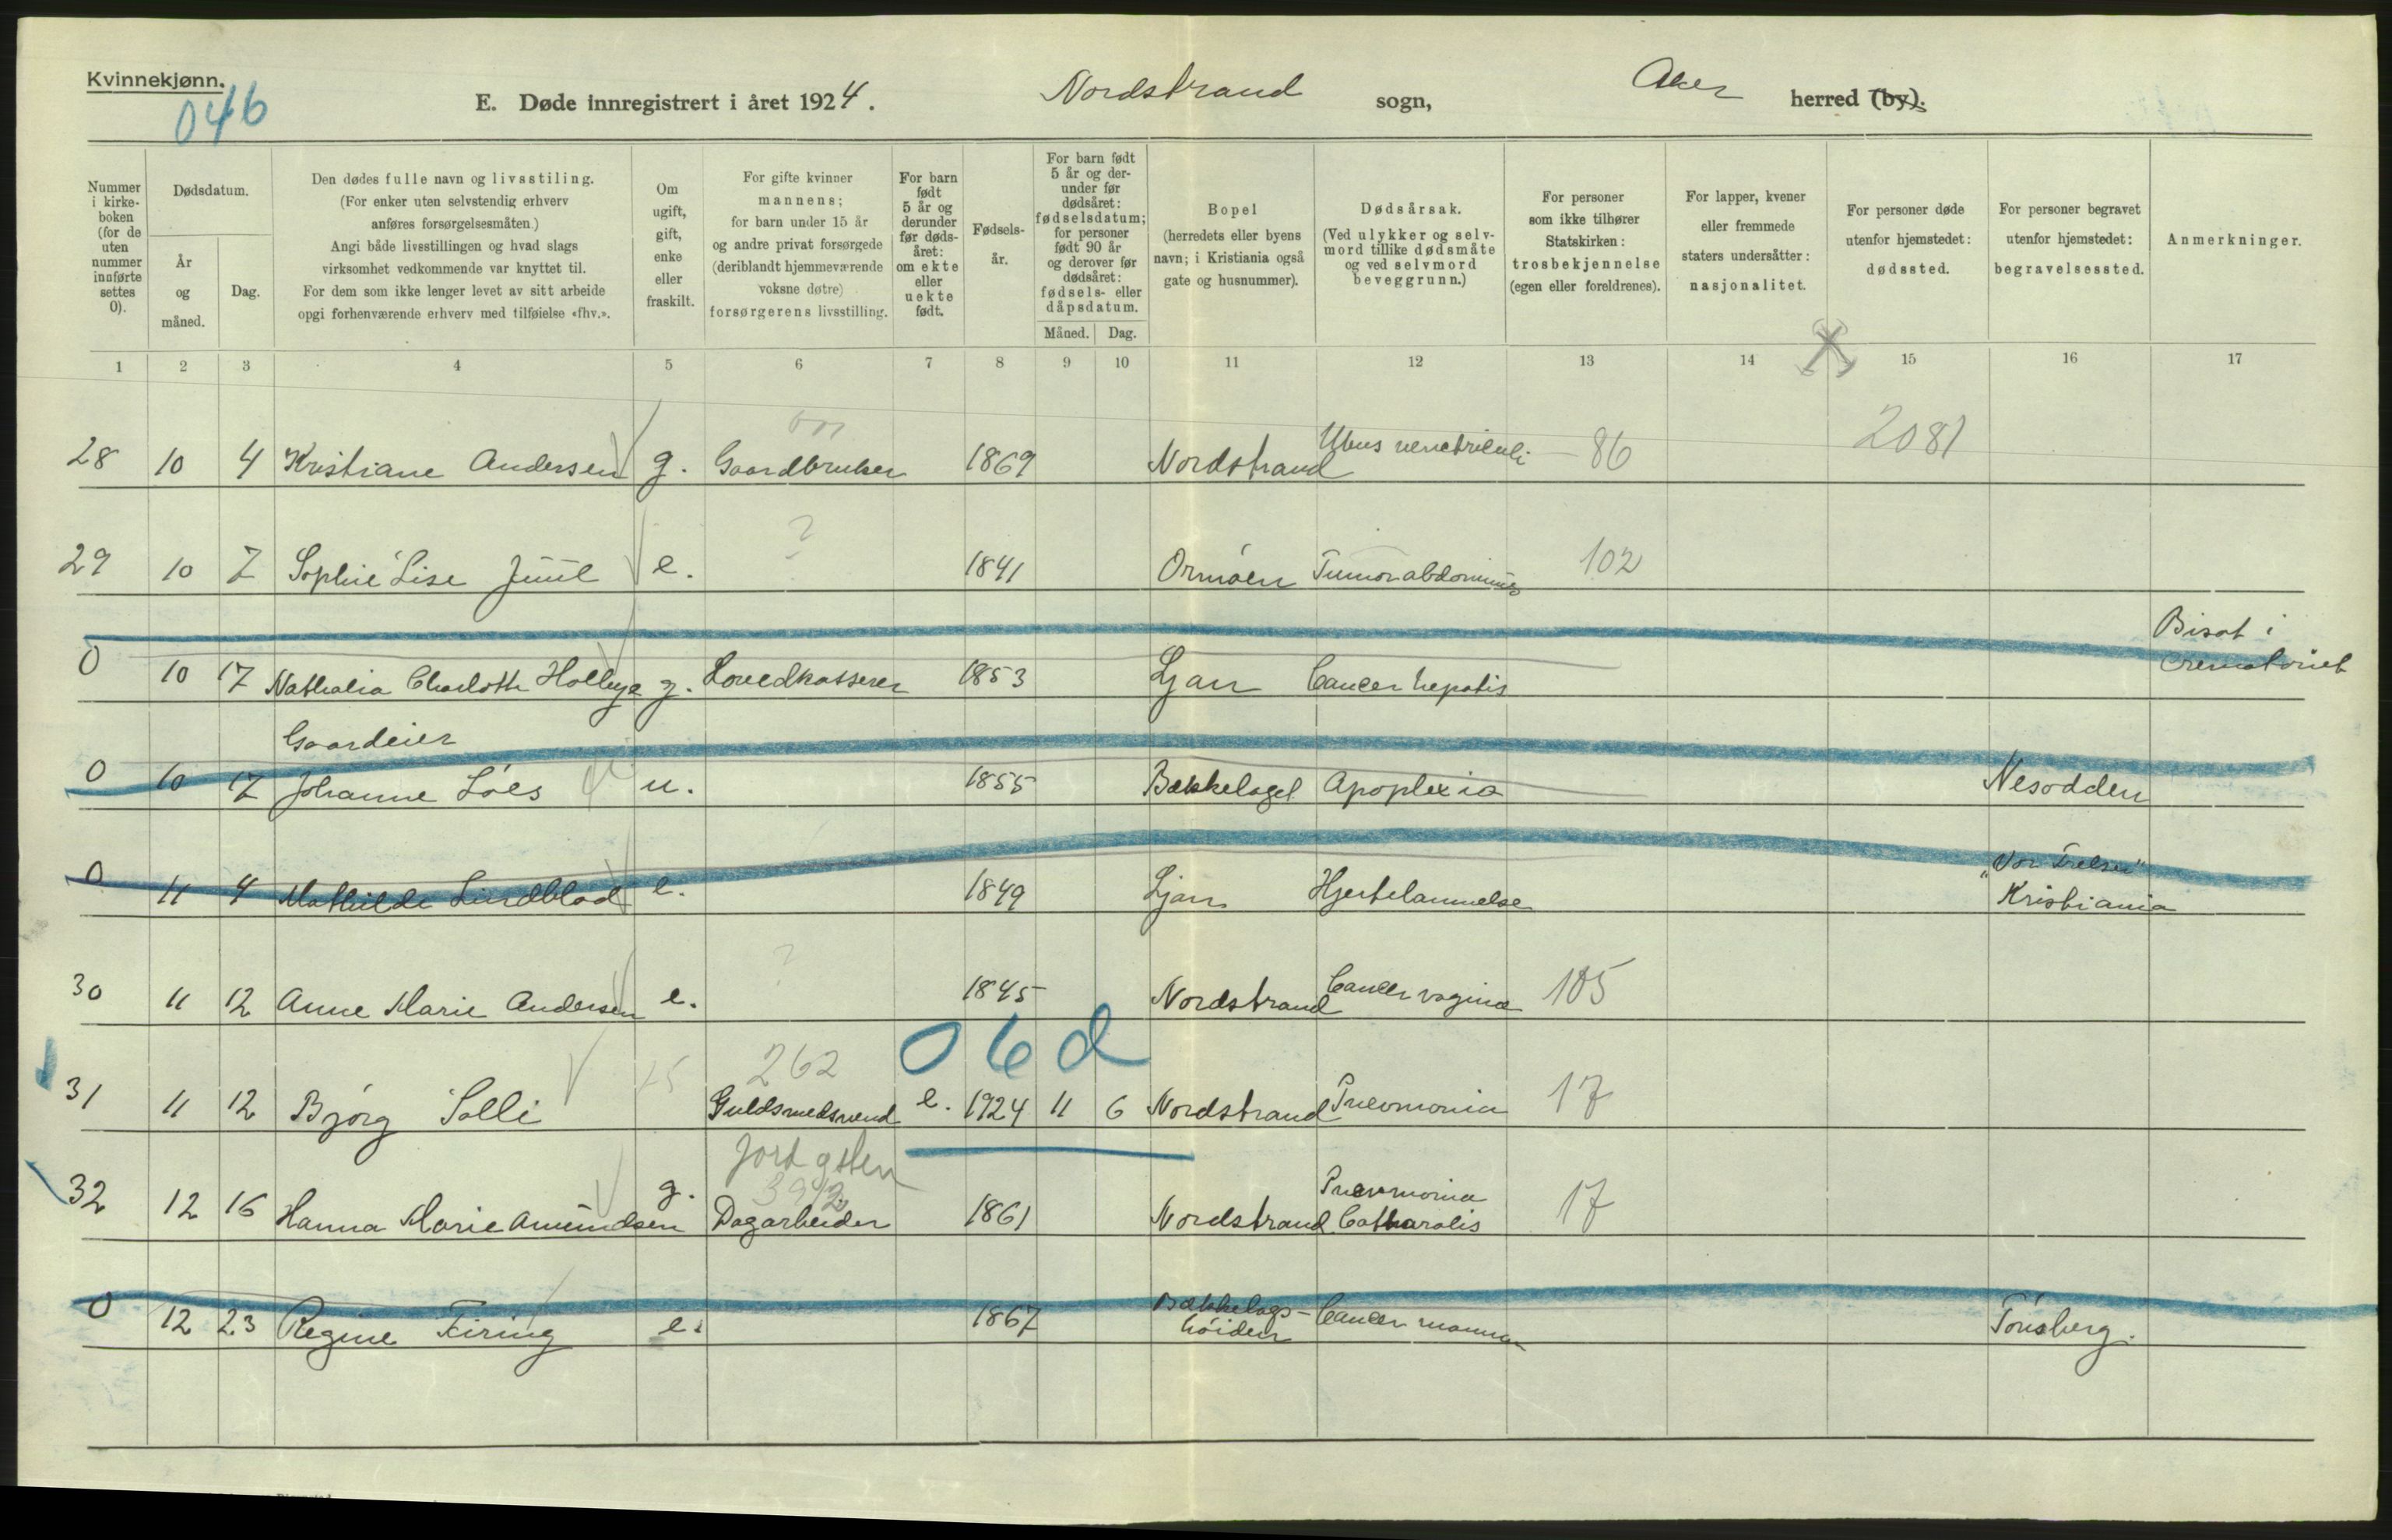 Kvinnekjønn.
046
E. Døde innregistrert i året 1924. Nordstrand sogn, Aker herred (by).
Nummer i kirke- boken (for de uten nummer innførte settes 0).
Dødsdatum.
År og måned.
Dag.
Den dødes fulle navn og livsstiling.
(For enker uten selvstendig erhverv
anføres forsørgelsesmåten.)
Angi både livesstillingen og hvad slags
virksomhet vedkommende var knyttet til.
For dem som ikke lenger levet av sitt arbeide
opgi forhenværende erhverv med tilføielse «fhv.».
Om ugift, gift, enke eller fraskilt.
For gifte kvinner
mannens;
for barn under 15 år
og andre privat forsørgede
(deriblandt hjemmeværende
voksne døtre)
forsørgerens livsstilling.
For barn født 5 år og derunder før døds- året: om ekte eller uekte født.
Fødsels- år.
For barn født 5 år og der- under før dødsåret: fødselsdatum; for personer født 90 år og derover før dødsåret: fødsels- eller dåpsdatum.
Måned. Dag.
Bopel
(herredets eller byens
navn; i Kristiania også
gate og husnummer).
Dødsårsak.
(Ved ulykker og selv-
mord tillike dødsmåte
og ved selvmord
beveggrunn.)
For personer
som ikke tilhører
Statskirken:
trosbekjennelse
(egen eller foreldrenes).
For lapper, kvener
eller fremmede
staters undersåtter:
nasjonalitet.
For personer døde
utenfor hjemstedet:
dødssted.
For personer begravet
utenfor hjemstedet:
begravelsessted.
Anmerkninger.
1 2 3 4 5 6 7 8 9 10 11 12 13 14 15 16 17
28 10 4 Kristiane Andersen g. Gaardbruker 1869 Nordstrand Ulcus ventriculi 86 2081
29 10 7 Sophie Lise Juul e. ? 1841 Ormøen Tumor abdominis 102
Bisat i
Crematoriet
0 10 17 Nathalia Charlotte g. 1853 Ljan Cancer hepatis
Gaardeier
0 10 17 Johanne Løes u. 1855 Bækkelaget Apoplexia Nesodden
"Vor Frelser"
0 11 4 Mathilde Lindblad e. 1849 Ljan Hjertelammelse Kristiania
30 11 12 Anne Marie Andersen e. ? 1845 Nordstrand Cancer vagina 105
262 06d
31 11 12 Bjørg Solli Guldsmedsvend e. 1924 11 6 Nordstrand Pneomonia 17
Jord gsten
3912
Pneumonia
32 12 16 Hanna Marie Amundsen g. Dagarbeider 1861 Nordstrand Catharalis 17
0 12 23 Regine Firing e. 1867 Bækkelags- høiden Cancer mamma Tønsberg.